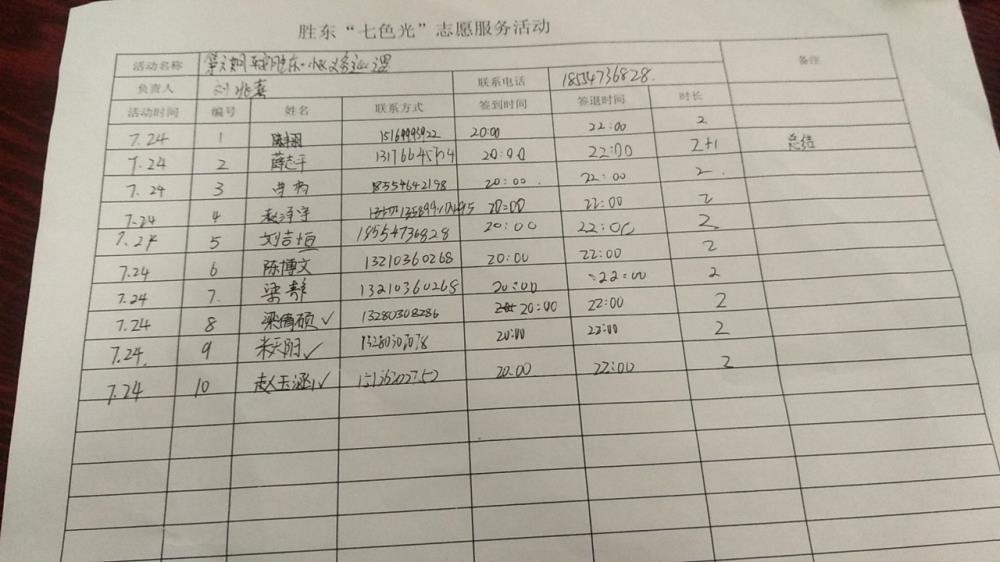 胜东“七色光”志愿服务活动
活动名称 备注
负责人 联系电话 18554736828.
活动时间 编号 姓名 联系方式 签到时间 签退时间 时长
7.24 1 15169995922 20:00 22:00 2
7.24 2 薛志平 20:00 22:00 2+1 总结
7.24 3 18554642198 20:00. 22:00 2.
7.24 4 赵泽宇 20:00 22:00 2
7.24 5 刘吉恒 18554736828 20:00 22:00 2
7.24 6 陈博文 13210360268 20:00 22:00 2
7.24 7. 梁静 13210360268 20:00 :22:00 2
7.24 8 梁倩硕✓ 13280308286 20:00 22:00 2
7.24. 9 ✓ 20:00 22:00 2
7.24 10 赵玉涵✓ 20:00 22:00 2